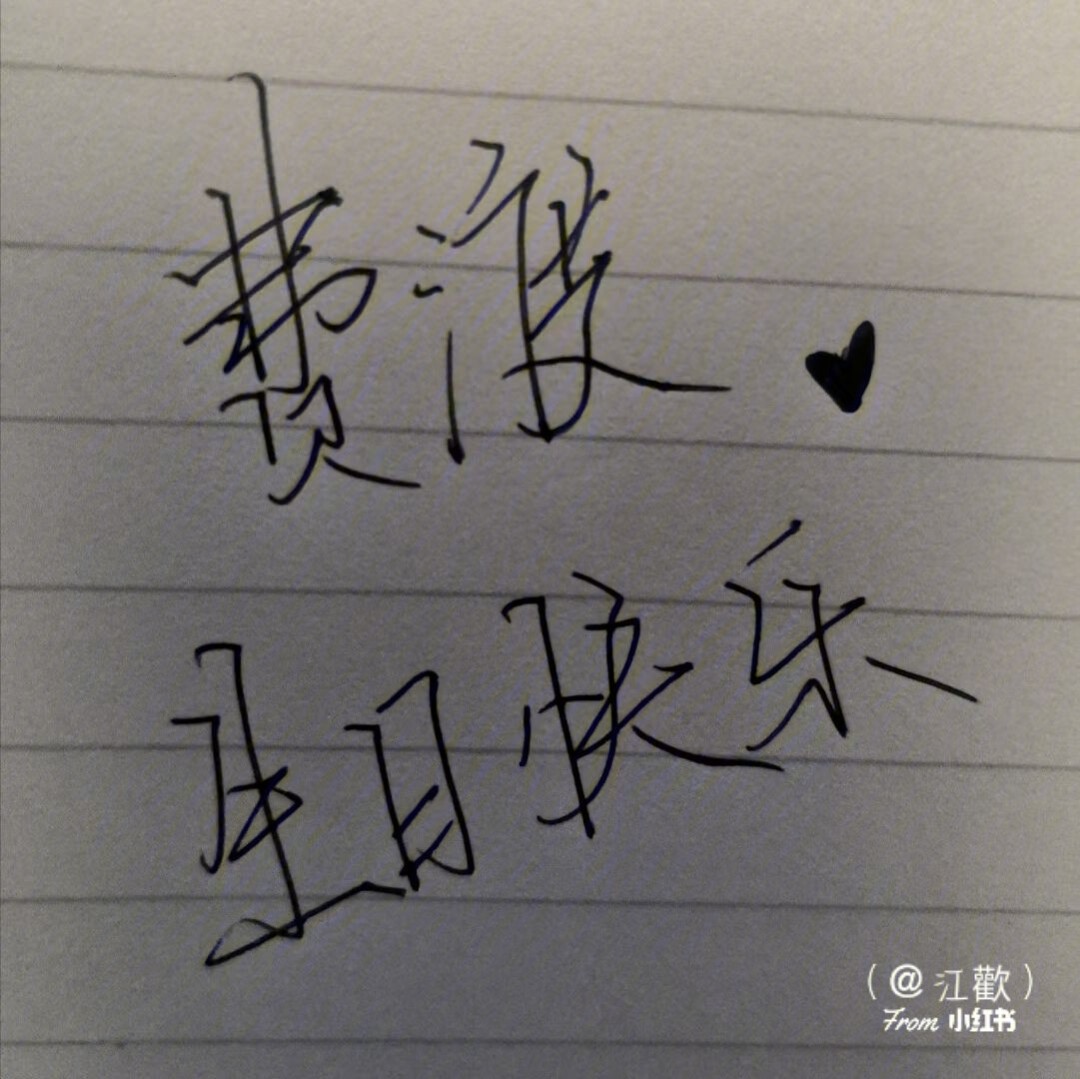 费渡
生日快乐
(@江歡)
From 小红书